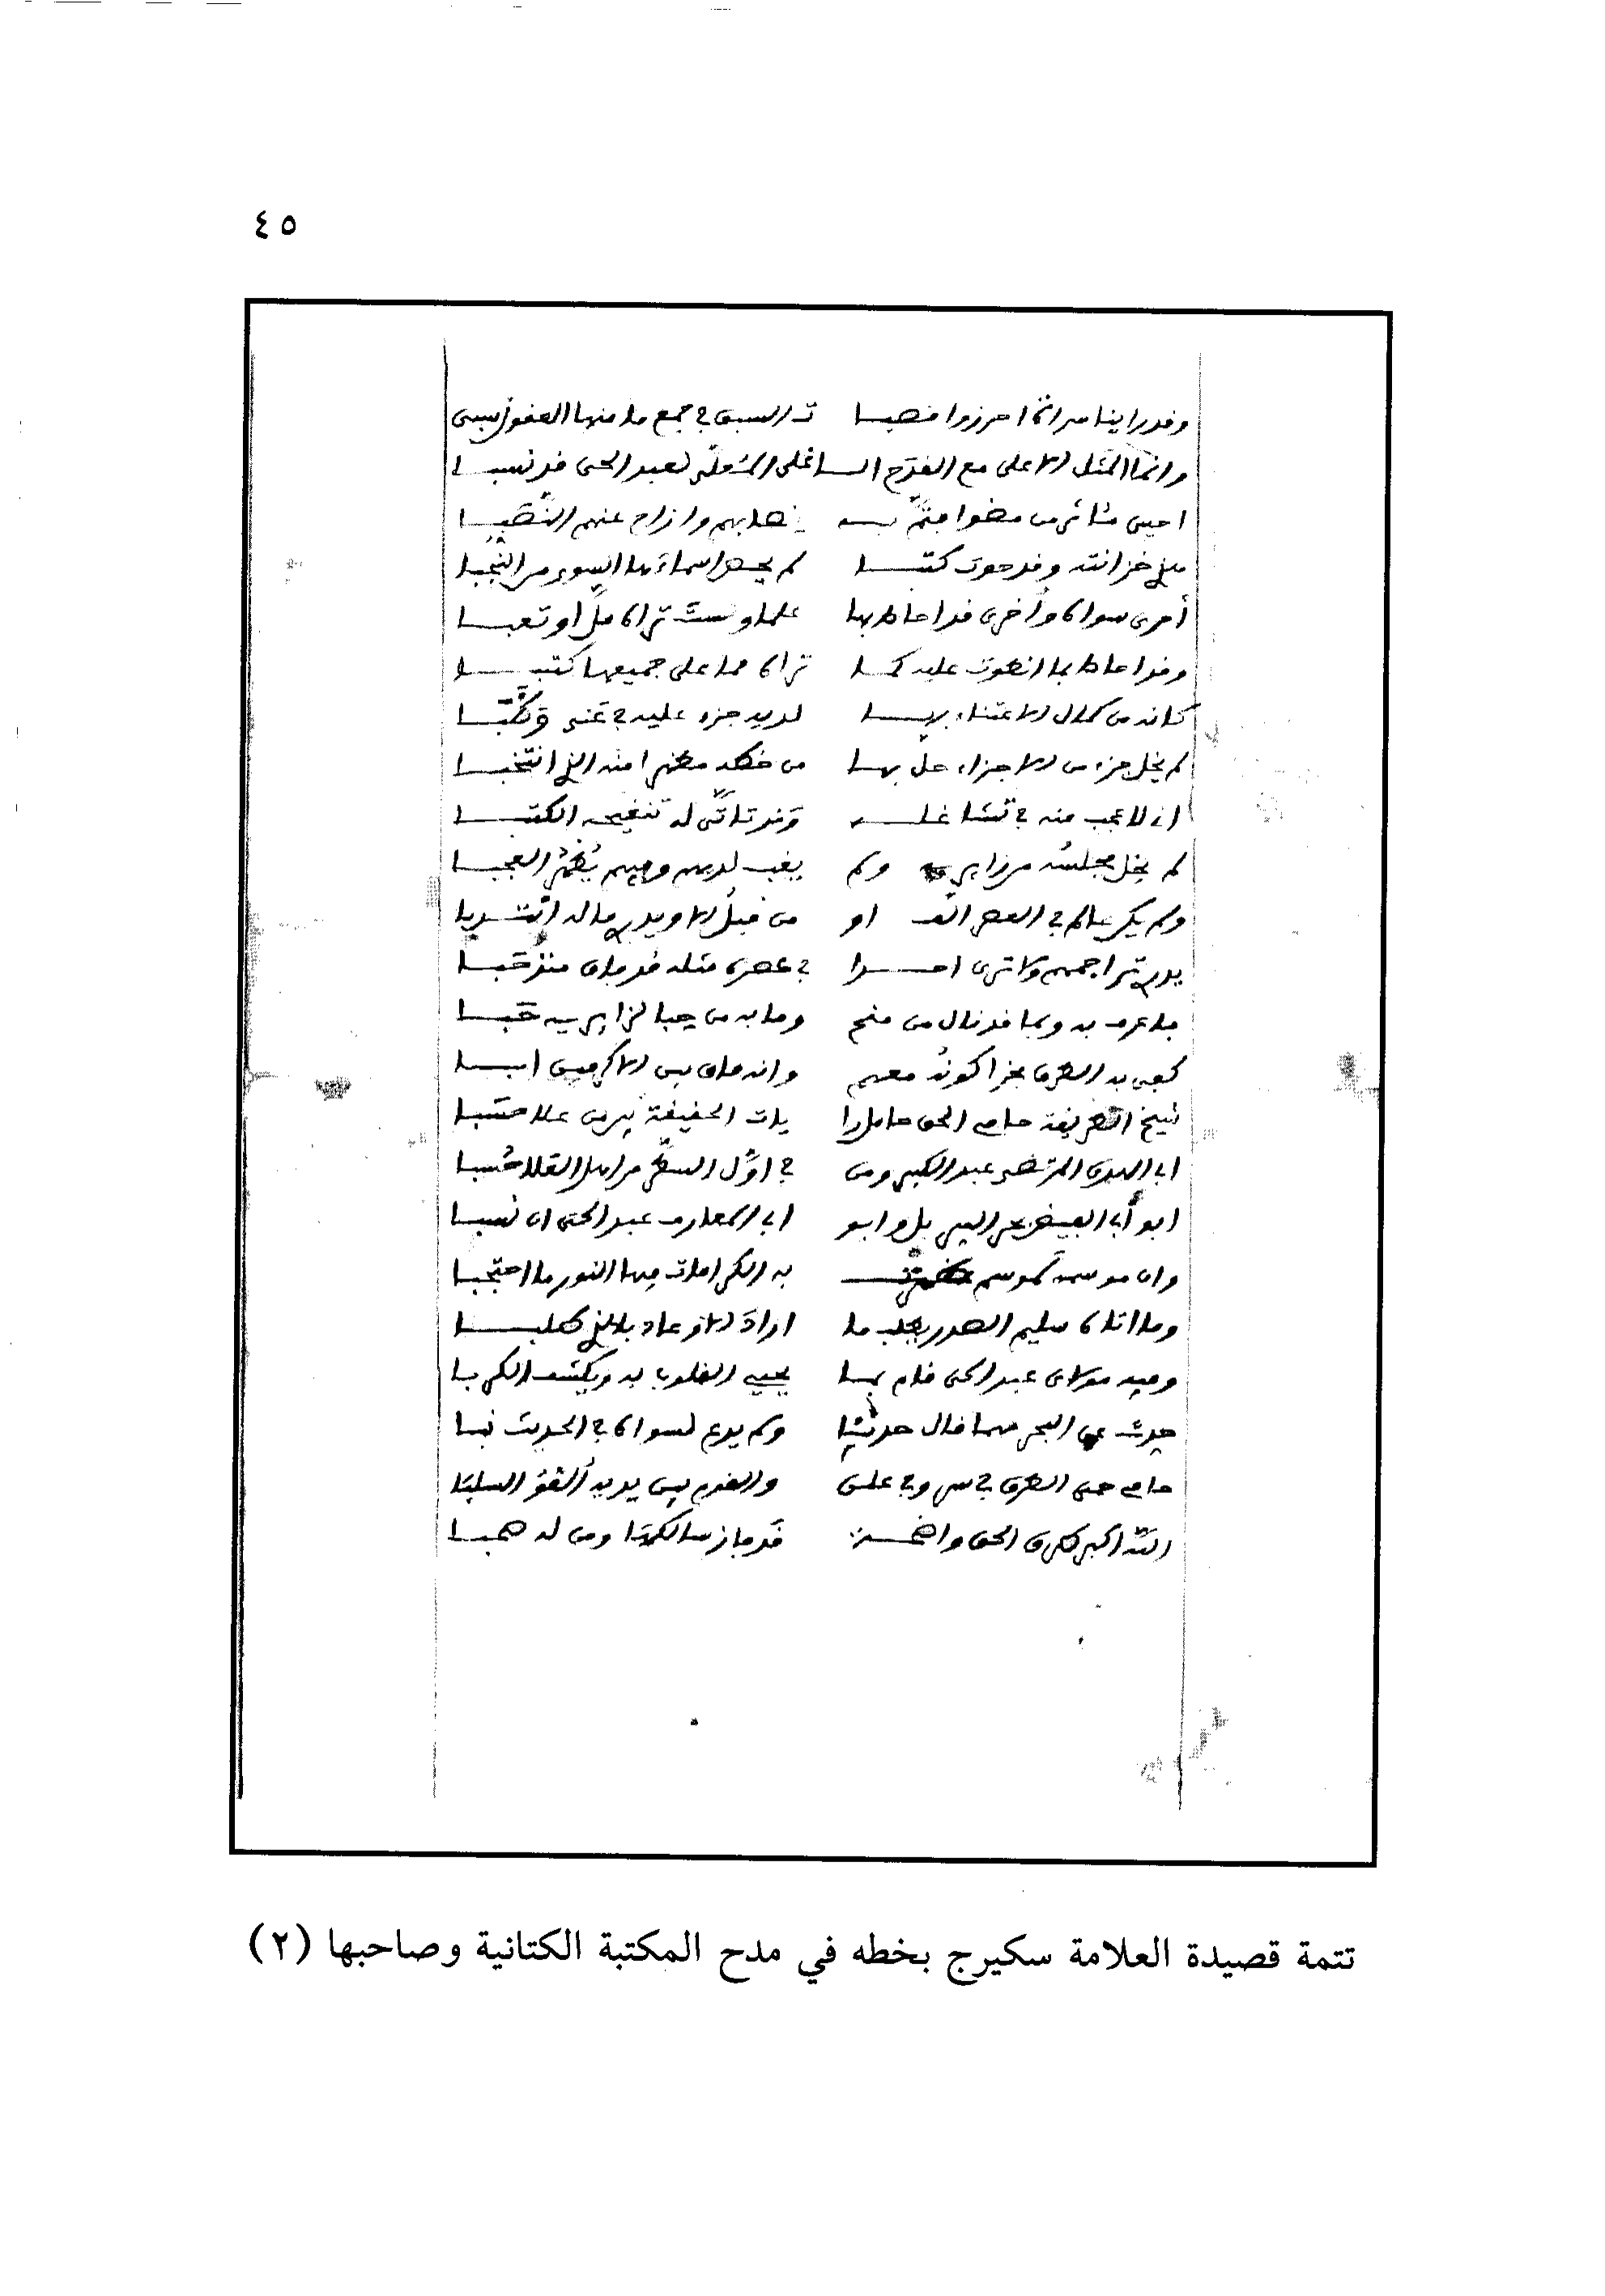 ٤٥
وقد راينا سراة احرزوا قصبا ت السبق في جمع ما منها العقول سبى
وانما المثل الاعلى مع القدح الـ لعبد الحي قد نسبا
احيى مئاثر من مضوا به بهم وازاح عنهم
خزانته وقد حوت كتبا لم يحص اسماءها من النجبا
أحرى سواه وأخرى قد احاط بها علما ولست تراه ملّ او تعبا
وقد احاط بما انطوت عليه كما تراه مما على جميعها كتبا
كانه من كمال الاعتناء بها لديه جزء عليه في
لم يخل جزء من الاجزاء حل بها من خطه منه الذي انتخبا
اني لاعجب منه في تشاغله وقد تاتّى له تنقيحه الكتبا
لم يخل مجلسه من زايريه ولم يغب لديهم وفيهم يُظهر العجبا
ولم يكن عالم في العصر الّف او من قبل الا ويدري ما له انتدبا
يدري تراجمهم ولا ترى احدا في عصره مثله قد فاق منذ حبا
ما عرف به وبما قد نال من منح وما به من حبا لزايريه حبا
كفى به الشرق فخرا كونه معهم وانه فاق بين الاكرمين ابا
شيخ الطريقة حامي الحق حامل را يات الحقيقة من علا حسبا
ابي المرتضى عبد الكبير ومن في اوّل السطر من اهل العلا حسبا
ابو أبي الفيض بل وابو ابي المعارف عبد الحي ان نسبا
وان موسمه كموسم به الكرامات فيها النور ما احتجبا
وما اتاه سليم الصدر يطلب ما اراد الا وعاد بالذي طلبا
وفيه مولاي عبد الحي قام بما يحيي القلوب به ويكشف الكربا
حدث عن البحر مهما قال حدثنا ولم يدع لسواه في الحديث نبا
حامي حمى الشرق في سر وفي علن والغرب بين يديه
الله اكبر طرق الحق واضحة قد فاز سالكها ومن له صحبا
تتمة قصيدة العلامة سكيرج بخطه في مدح المكتبة الكتانية وصاحبها (٢)